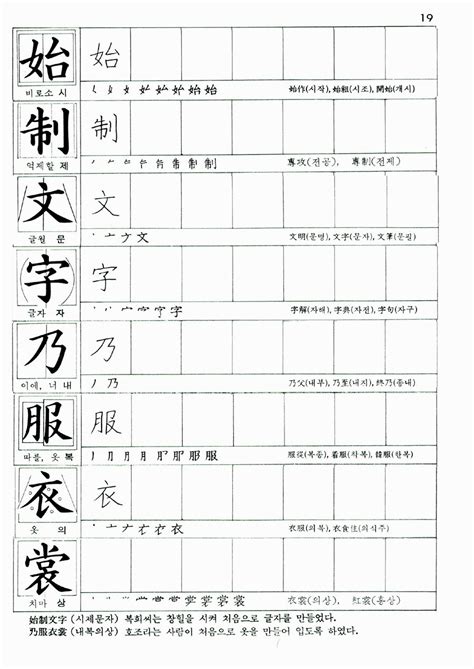 19
始 始
비로소 시 始作(시작), 始祖(시조), 開始(개시)
制 制
억제할 제 專攻(전공), 專制(전제)
文 文
글월 문 文明(문명), 文字(문자), 文筆(문필)
字 字
글자 자 字解(자해), 字典(자전), 字句(자구)
乃 乃
이에, 너 내 乃父(내부), 乃至(내지), 終乃(종내)
服 服
따를, 옷 복 服從(복종), 着服(착복), 韓服(한복)
衣 衣
옷 의 衣服(의복), 衣食住(의식주)
裳
치마 상 衣裳(의상), 紅裳(홍상)
始制文字 (시제문자) 복희씨는 창힐을 시켜 처음으로 글자를 만들었다.
乃服衣裳 (내복의상) 호조라는 사람이 처음으로 옷을 만들어 입도록 하였다.